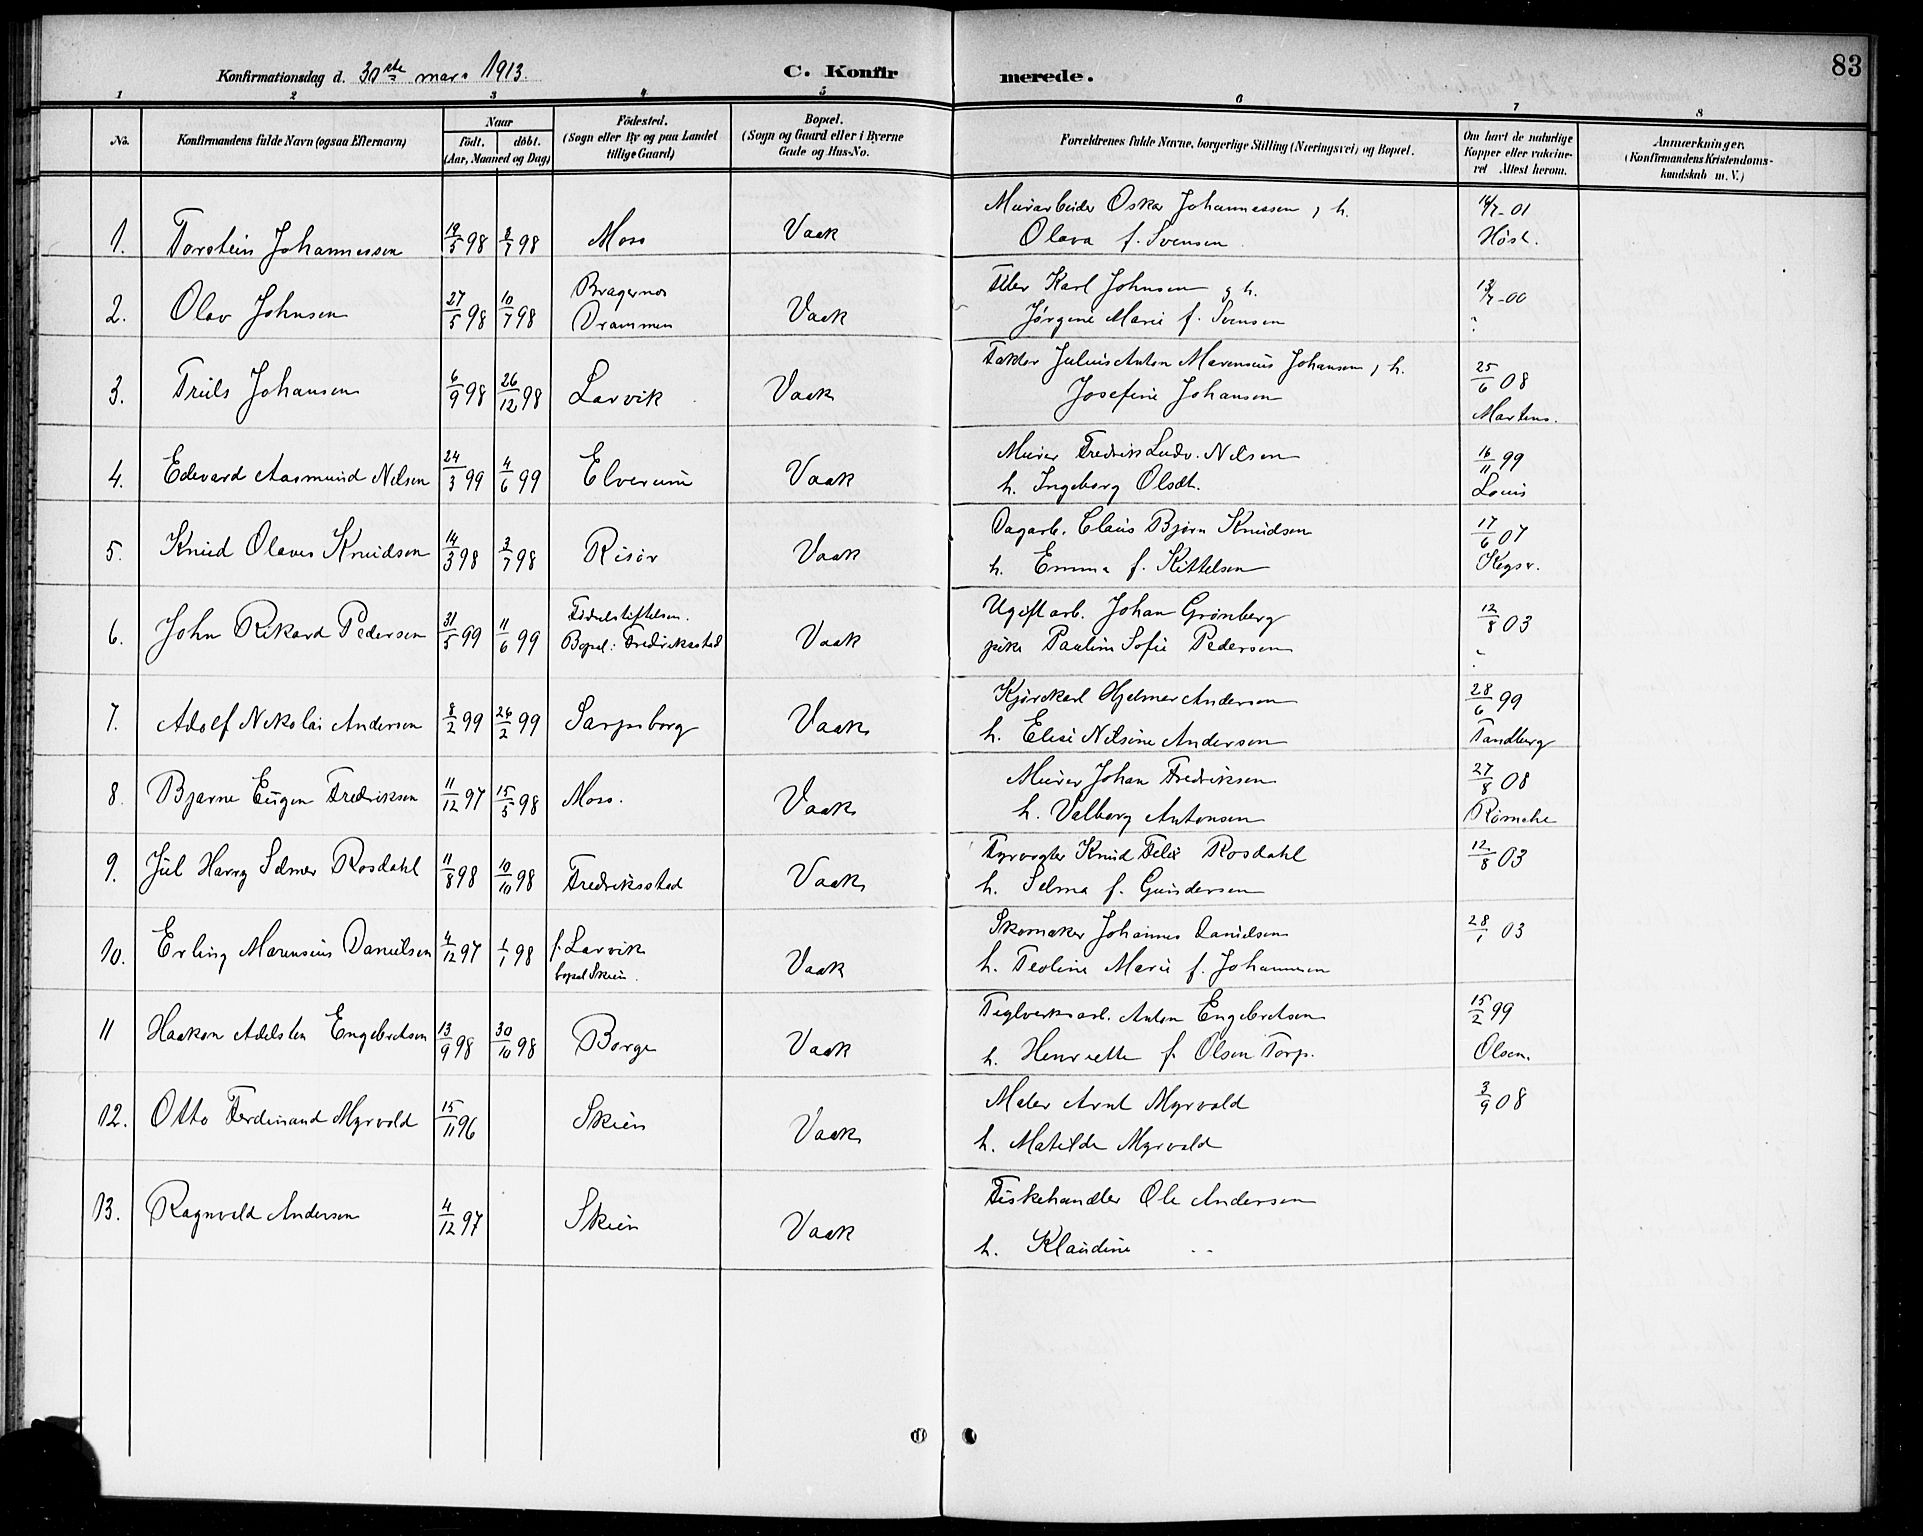 83
Konfirmationsdag d. 30te mars 1913. C. Konfirmerede.
1 2 3 4 5 6 7 8
No. Konfirmandens fulde Navn (ogsaa Efternavn) Naar født. døbt. (Aar, Maaned og Dag) Fødested. (Sogn eller By og paa Landet tillige Gaard) Bopæl. (Sogn og Gaard eller i Byerne Gade og Hus-No. Forældrenes fulde Navne, borgerlige Stilling (Næringsvei) og Bopæl. Om havt de naturlige Kopper eller vakcineret Attest herom. Anmærkninger. (Konfirmandens Kristendomskundskab m. V.)
1. Torstein Johannessen 19/5 98 8/7 98 Moss Vaak Murarbeider Oskar Johannessen, h. 14/7-01
Olava f. Svensen Høst.
2. Olav Johnsen 27/5 98 10/7 98 Bragernes Drammen Vaak Karl Johnsen g h. 13/7-00
Jørgine Marie f. Svensen
3. Truls Johansen 6/9 98 26/12 98 Larvik Vaak Julius Anton Marensius Johansen, h. 25/6 08
Josefine Johansen Martens.
4. Edvard Aasmund Nilsen 24/3 99 4/6 99 Elverum Vaak Murer Fredrik Ludv. Nilsen 16/11 99
h. Ingeborg Olsdt. Louis
5. Knud Olaves Knudsen 14/3 98 3/7 98 Risör Vaak Dagarb. Claus Bjørn Knudsen 17/6 07
h. Emma f. Kittelsen
6. John Rikard Pedersen 31/5 99 11/6 99 Födselstiftelsen. Bopæl: Fredriksstad Vaak Ugift arb. Johan Grönberg 12/8 03
pike Pauline Sofie Pedersen
7. Adolf Nikolai Andersen 8/2 99 26/2 99 Sarpsborg Vaak Kjørekarl Hjelmer Andersen 28/6 99
h. Elise Nilsine Andersen Tandberg
8. Bjarne Eugen Fredriksen 11/12 97 15/5 98 Moss. Vaak Murer Johan Fredriksen 27/8 08
h. Valborg Antonsen Römcke
9. Jul Harry Selmer Rosdahl 11/8 98 10/10 98 Fredriksstad Vaak Fyrvogter Knud Felix Rosdahl 12/8 03
h. Selma f. Gundersen
10. Erling Marensius Danielsen 4/12 97 1/1 98 f. Larvik bopæl Skien. Vaak Skomaker Johannes Danielsen 28/1 03
h. Teoline Marie f. Johannesen
11 Haakon Adelsten Engebretsen 13/9 98 30/10 98 Borge Vaak Teglverksarb. Anton Engebretsen 15/2 99
h. Henriette f. Olsen Torp. Olsen.
12. Otto Ferdinand Myrvold 15/11 96 Skien Vaak Maler Arnt Myrvold 3/9 08
h. Matilde Myrvold
13. Ragnvald Andersen 4/12 97 Skien Vaak Fiskehandler Ole Andersen
h. Klaudine - -